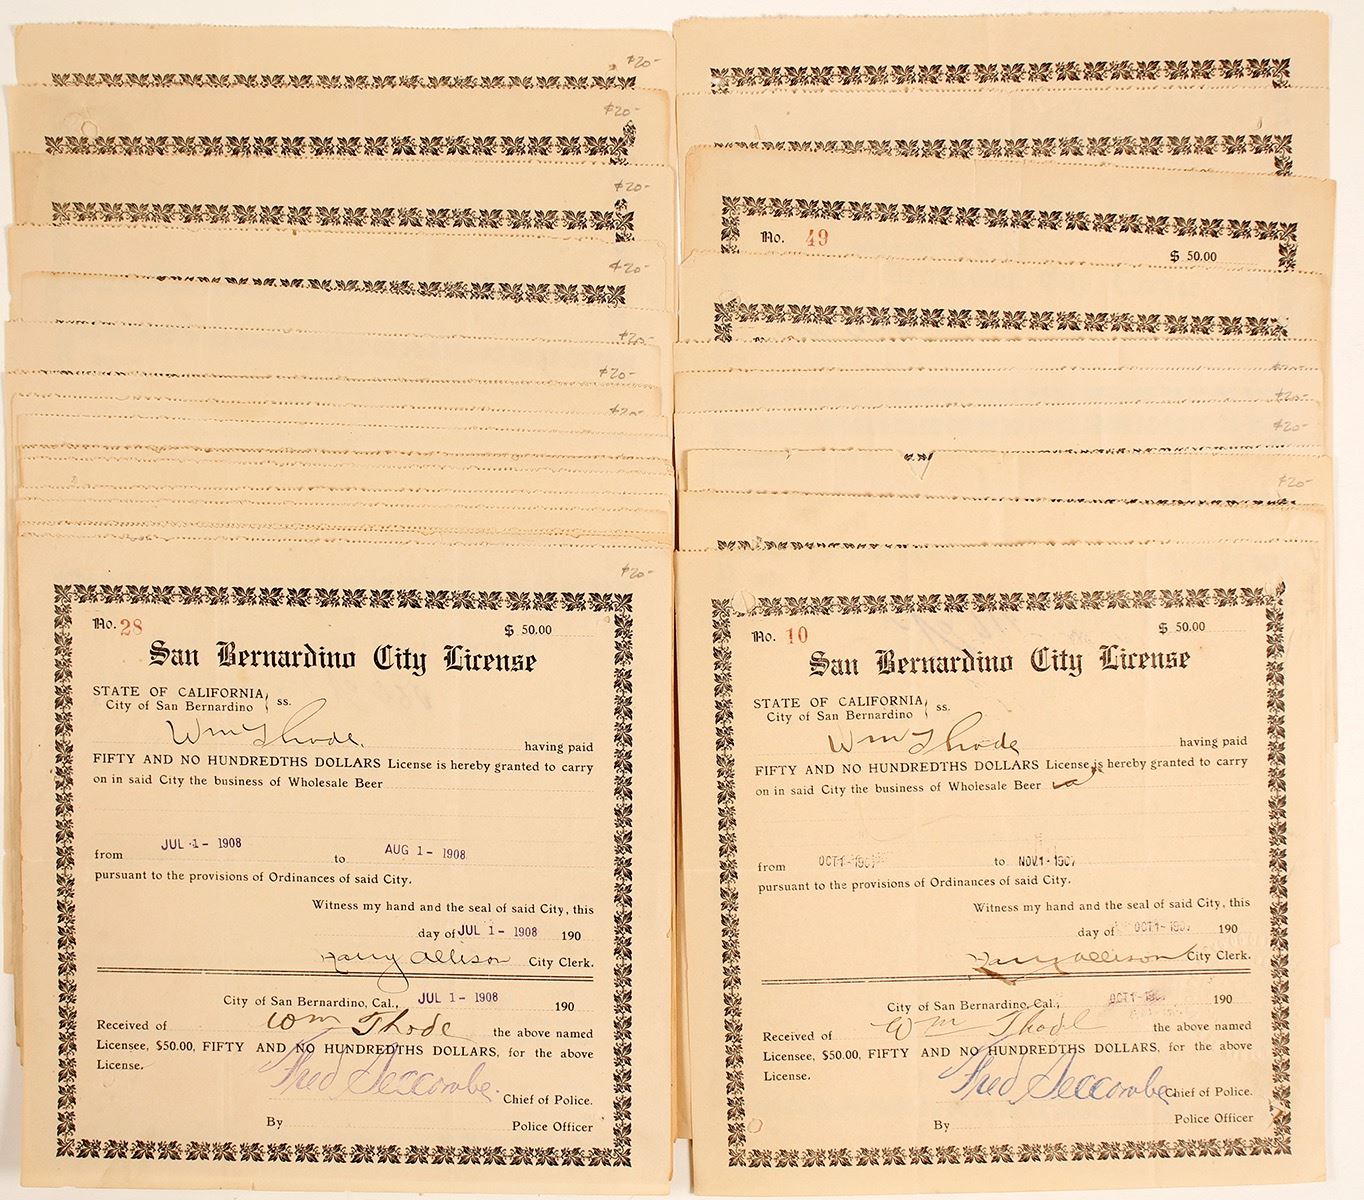 $20-
$20-
$20-
$20-
$20-
$20-
$20-
No. 49
$ 50.00
$20-
$20-
$20-
$20-
No. 28
$ 50.00
San Bernardino City License
STATE OF CALIFORNIA,
City of San Bernardino
ss.
Wm Thode.
having paid
FIFTY AND NO HUNDREDTHS DOLLARS License is hereby granted to carry
on in said City the business of Wholesale Beer
from JUL 1 - 1908 to AUG 1 - 1908
pursuant to the provisions of Ordinances of said City.
Witness my hand and the seal of said City, this
day of JUL 1 - 1908 190
Harry Allison City Clerk.
City of San Bernardino, Cal., JUL 1 - 1908 190
Received of Wm Thode the above named
Licensee, $50.00, FIFTY AND NO HUNDREDTHS DOLLARS, for the above
License.
Fred Seccombe.
Chief of Police.
By Police Officer
$20-
No. 10
$ 50.00
San Bernardino City License
STATE OF CALIFORNIA,
City of San Bernardino
ss.
Wm Thode
having paid
FIFTY AND NO HUNDREDTHS DOLLARS License is hereby granted to carry
on in said City the business of Wholesale Beer
from OCT 1 - 1907 to NOV 1 - 1907
pursuant to the provisions of Ordinances of said City.
Witness my hand and the seal of said City, this
day of OCT 1 - 1907 190
Harry Allison City Clerk.
City of San Bernardino, Cal., OCT 1 - 1907 190
Received of Wm Thode the above named
Licensee, $50.00, FIFTY AND NO HUNDREDTHS DOLLARS, for the above
License.
Fred Seccombe
Chief of Police.
By Police Officer